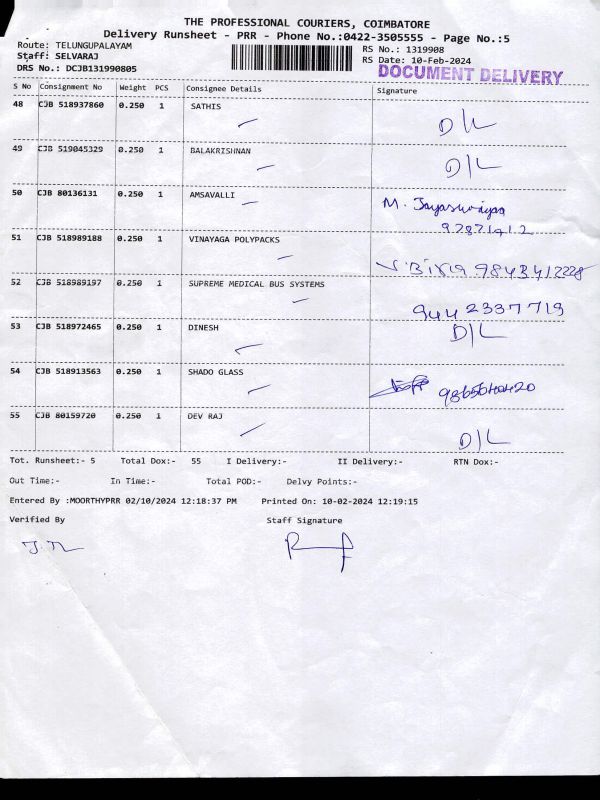 THE PROFESSIONAL COURIERS, COIMBATORE
Delivery Runsheet - PRR - Phone No.:0422-3505555 - Page No.:5
Route: TELUNGUPALAYAM RS No.: 1319908
Staff: SELVARAJ RS Date: 10-Feb-2024
DRS No.: DCJB131990805 DOCUMENT DELIVERY
S No Consignment No Weight PCS Consignee Details Signature
48 CJB 518937860 0.250 1 SATHIS D/L
49 CJB 519045329 0.250 1 BALAKRISHNAN D/L
50 CJB 80136131 0.250 1 AMSAVALLI M.
51 CJB 518989188 0.250 1 VINAYAGA POLYPACKS 9843412228
52 CJB 518989197 0.250 1 SUPREME MEDICAL BUS SYSTEMS 9442337719
53 CJB 518972465 0.250 1 DINESH D/L
54 CJB 518913563 0.250 1 SHADO GLASS
55 CJB 80159720 0.250 1 DEV RAJ D/L
Tot. Runsheet:- 5 Total Dox:- 55 I Delivery:- II Delivery:- RTN Dox:-
Out Time:- In Time:- Total POD:- Delvy Points:-
Entered By :MOORTHYPRR 02/10/2024 12:18:37 PM Printed On: 10-02-2024 12:19:15
Verified By Staff Signature